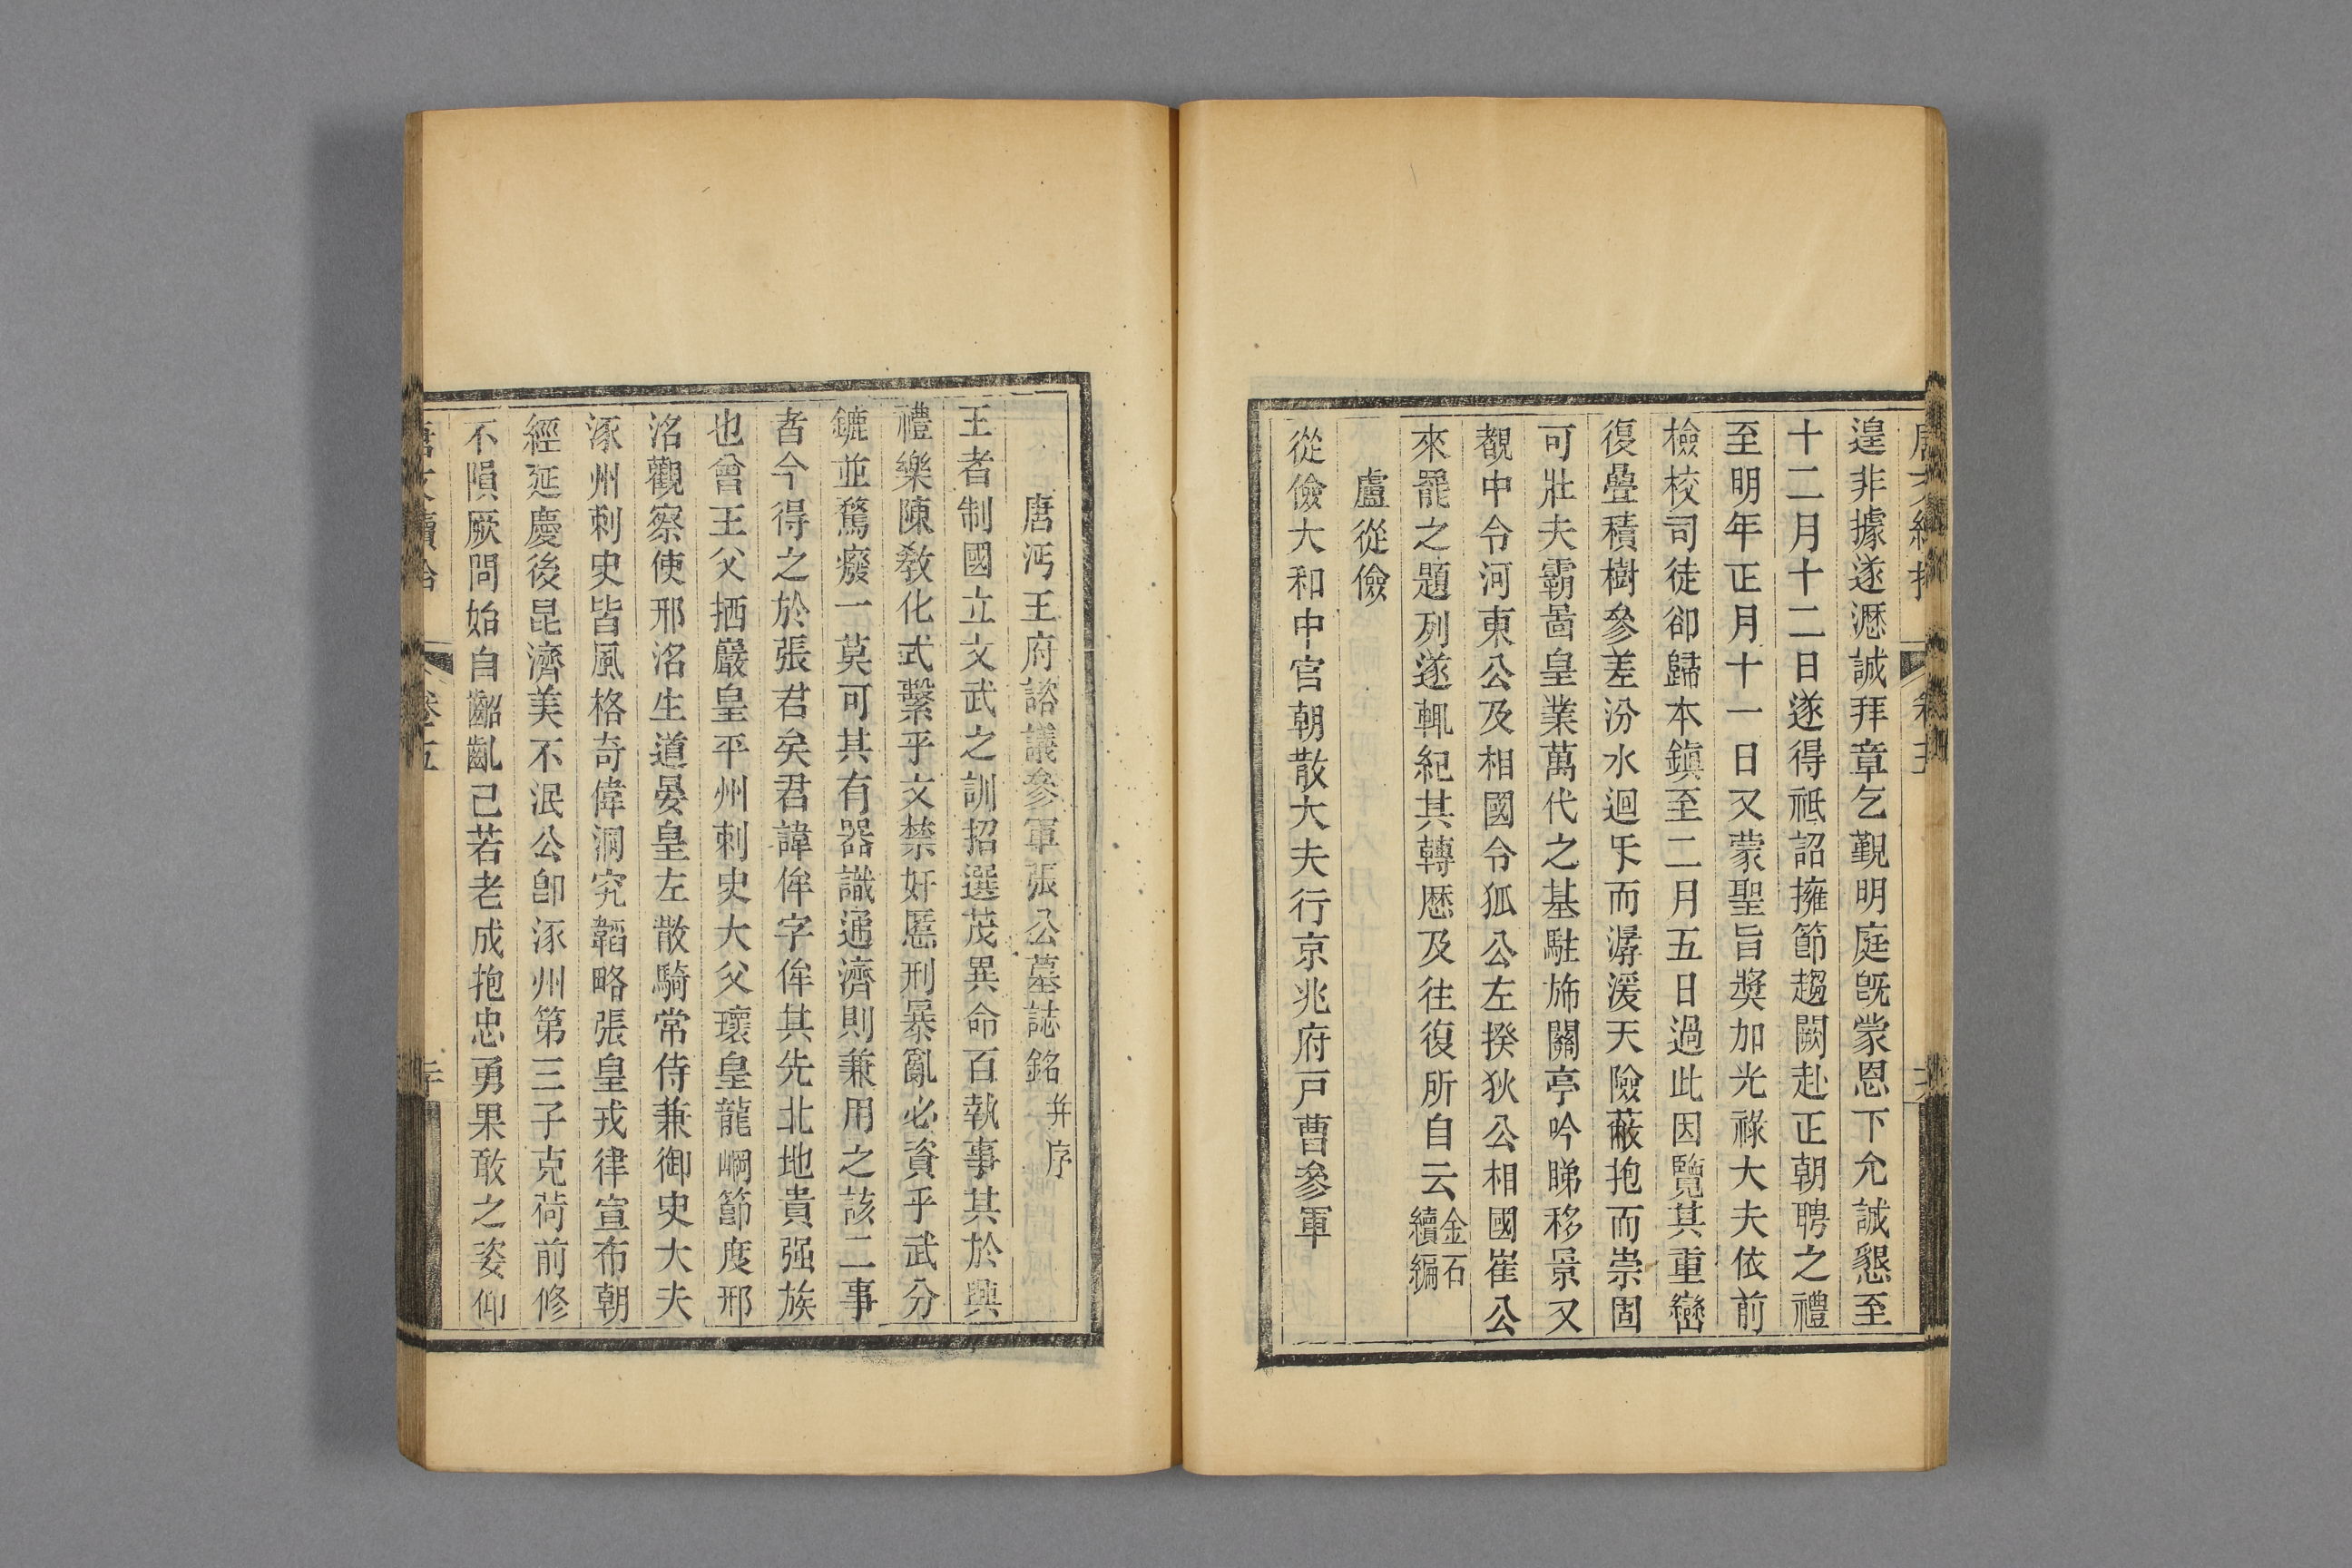 遑非據遂瀝誠拜章乞覲明庭旣蒙恩下允誠懇至
十二月十二日遂得祗詔擁節趨闕赴正朝聘之禮
至明年正月十一日又蒙聖旨奬加光祿大夫依前
檢校司徒卻歸本鎭至二月五日過此因覽其重巒
復疊積樹參差汾水迴㸦而潺湲天險蔽抱而崇固
可壯夫霸啚皇業萬代之基駐斾關亭吟睇移景又
覩中令河東公及相國令狐公左揆狄公相國崔公
來罷之題列遂輒紀其轉歷及往復所自云金石續編
盧從儉
從儉大和中官朝散大夫行京兆府戸曹參軍
唐沔王府諮議參軍張公墓誌銘并序
王者制國立文武之訓招選茂異命百執事其於興
禮樂陳敎化式繫乎文禁奸慝刑暴亂必資乎武分
鑣並騖癈一莫可其有器識通濟則兼用之該二事
者今得之於張君矣君諱侔字侔其先北地貴强族
也曾王父栖巖皇平州刺史大父瓌皇龍岡節度邢
洺觀察使邢洺生道晏皇左散騎常侍兼御史大夫
涿州刺史皆風格奇偉洞究韜略張皇戎律宣布朝
經延慶後昆濟美不泯公卽涿州第三子克荷前修
不隕厥問始自齠齓己若老成抱忠勇果敢之姿仰
卷五